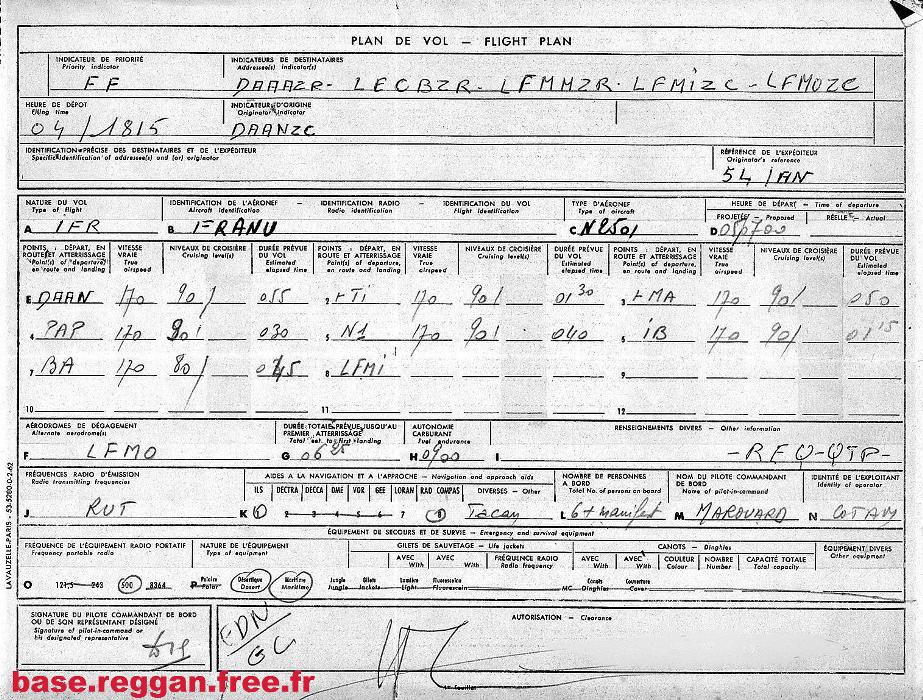 PLAN DE VOL — FLIGHT PLAN
INDICATEUR DE PRIORITÉ
Priority indicator
FF
INDICATEURS DE DESTINATAIRES
Addressee(s) Indicator(s)
DAAAZR - LECBZR - LFMMZR - LFMIZC - LFMOZC
HEURE DE DÉPOT
Filing time
04/1815
INDICATEUR D'ORIGINE
Originator indicator
DAANZC
IDENTIFICATION PRÉCISE DES DESTINATAIRES ET DE L'EXPÉDITEUR
Specific identification of addressee(s) and (or) originator
RÉFÉRENCE DE L'EXPÉDITEUR
Originator's reference
54/AN
NATURE DU VOL
Type of flight
A IFR
IDENTIFICATION DE L'AÉRONEF – IDENTIFICATION RADIO – IDENTIFICATION DU VOL
Aircraft identification – Radio identification – Flight identification
B FRANU
TYPE D'AÉRONEF
Type of aircraft
C N2501
HEURE DE DÉPART – Time of departure
PROJETÉE – Proposed
RÉELLE – Actual
D 05/1700
POINTS : DÉPART, EN ROUTE ET ATTERRISSAGE
Point(s) of departure, en route and landing
VITESSE VRAIE
True airspeed
NIVEAUX DE CROISIÈRE
Cruising level(s)
DURÉE PRÉVUE DU VOL
Estimated elapsed time
POINTS : DÉPART, EN ROUTE ET ATTERRISSAGE
Point(s) of departure, en route and landing
VITESSE VRAIE
True airspeed
NIVEAUX DE CROISIÈRE
Cruising level(s)
DURÉE PRÉVUE DU VOL
Estimated elapsed time
POINTS : DÉPART, EN ROUTE ET ATTERRISSAGE
Point(s) of departure, en route and landing
VITESSE VRAIE
True airspeed
NIVEAUX DE CROISIÈRE
Cruising level(s)
DURÉE PRÉVUE DU VOL
Estimated elapsed time
E DAAN 170 90/ 055 TI 170 90/ 0130 3 MA 170 90/ 050
4 PAP 170 90/ 030 N1 170 90/ 040 5 IB 170 90/ 0115
7 BA 170 80/ 045 8 LFMI 9
10 11 12
AÉRODROMES DE DÉGAGEMENT
Alternate aerodrome(s)
F LFMO
DURÉE TOTALE PRÉVUE JUSQU'AU PREMIER ATTERRISSAGE
Total est. to first landing
G
AUTONOMIE CARBURANT
Fuel endurance
H 0900
RENSEIGNEMENTS DIVERS – Other information
I -RFQ-QTP-
FRÉQUENCES RADIO D'ÉMISSION
Radio transmitting frequencies
J RUT
AIDES A LA NAVIGATION ET A L'APPROCHE – Navigation and approach aids
ILS DECTRA DECCA DME VOR GEE LORAN RAD COMPAS DIVERSES – Other
K 1 2 3 4 5 6 7 8 Tacan
NOMBRE DE PERSONNES A BORD
Total No. of persons on board
L 6 + manifest
NOM DU PILOTE COMMANDANT DE BORD
Name of pilot-in-command
M MAROUARD
IDENTITÉ DE L'EXPLOITANT
Identity of operator
N COTAM
ÉQUIPEMENT DE SECOURS ET DE SURVIE – Emergency and survival equipment
FRÉQUENCE DE L'ÉQUIPEMENT RADIO PORTATIF
Frequency portable radio
NATURE DE L'ÉQUIPEMENT
Type of equipment
GILETS DE SAUVETAGE – Life jackets
AVEC With AVEC With FRÉQUENCE RADIO Radio frequency
CANOTS – Dinghies
AVEC With AVEC With COULEUR Colour NOMBRE Number CAPACITÉ TOTALE Total capacity
ÉQUIPEMENT DIVERS
Other equipment
O 121,5 243 500 8364
P Polaire Polar Désertique Desert Maritime Maritime Jungle Jungle Gilets Jackets Lumière Light Fluorescine Fluorescein MC Canots Dinghies Couverture Cover
SIGNATURE DU PILOTE COMMANDANT DE BORD
OU DE SON REPRÉSENTANT DÉSIGNÉ
Signature of pilot-in-command or
his designated representative
AUTORISATION – Clearance
LAVAUZELLE-PARIS
base.reggan.free.fr